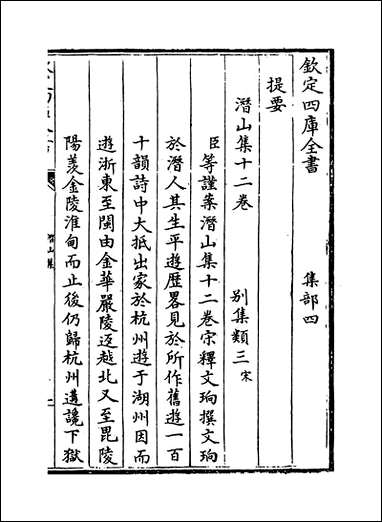 欽定四庫全書 集部四
提要
潛山集十二卷 别集類三宋
臣等謹案潛山集十二卷宋釋文珦撰文珦
於潛人其生平遊歴畧見於所作舊遊一百
十韻詩中大抵出家於杭州遊于湖州因而
遊浙東至閩由金華嚴陵返越北又至毘陵
陽羨金陵淮甸而止後仍歸杭州遘讒下獄
潛山集